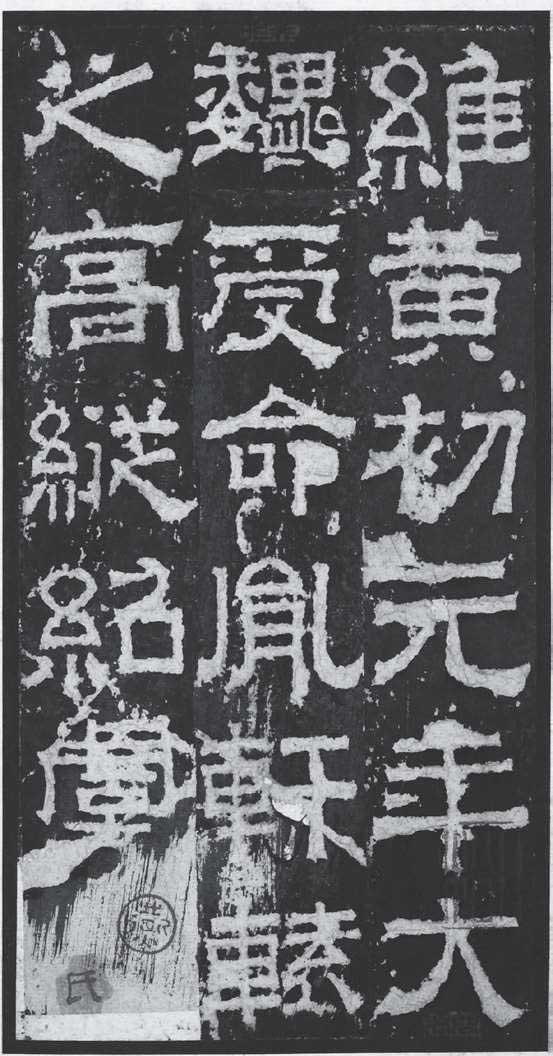 維黃初元年大
魏受命胤軒轅
之高縱紹虞
氏